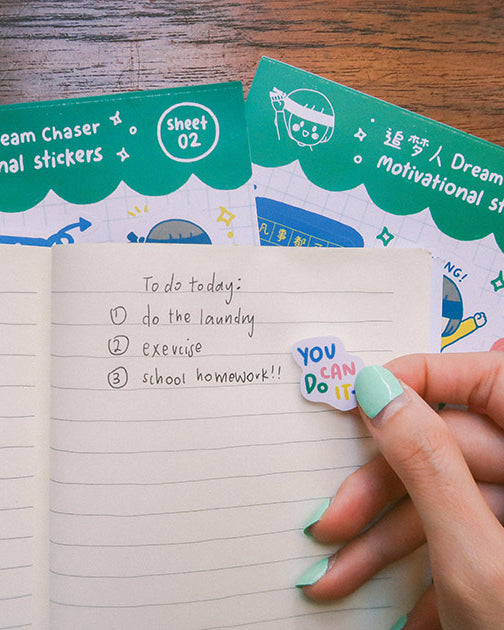 eam Chaser
nal stickers
Sheet
02
追梦人 Dream
Motivational St
凡事都
NG!
To do today:
① do the laundry
② exercise
③ school homework!!
YOU
CAN
DO IT